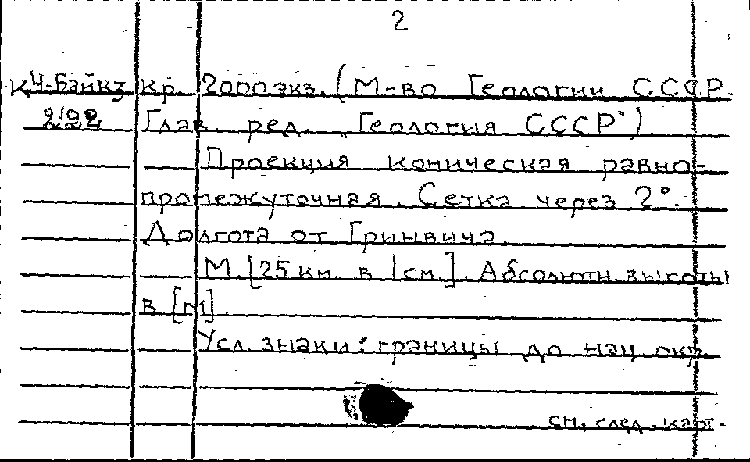 2
К Ч-Байкз кр. 2000 экз. (М-во Геологии СССР.
2/92 Глав. ред. "Геология СССР")
Проекция коническая равно-
промежуточная. Сетка через 2°.
Долгота от Гринвича.
М. [25 км. в 1 см.]. Абсолютн. высоты
в [м].
Усл. знаки: границы до нац. окр.
см. след. карт.